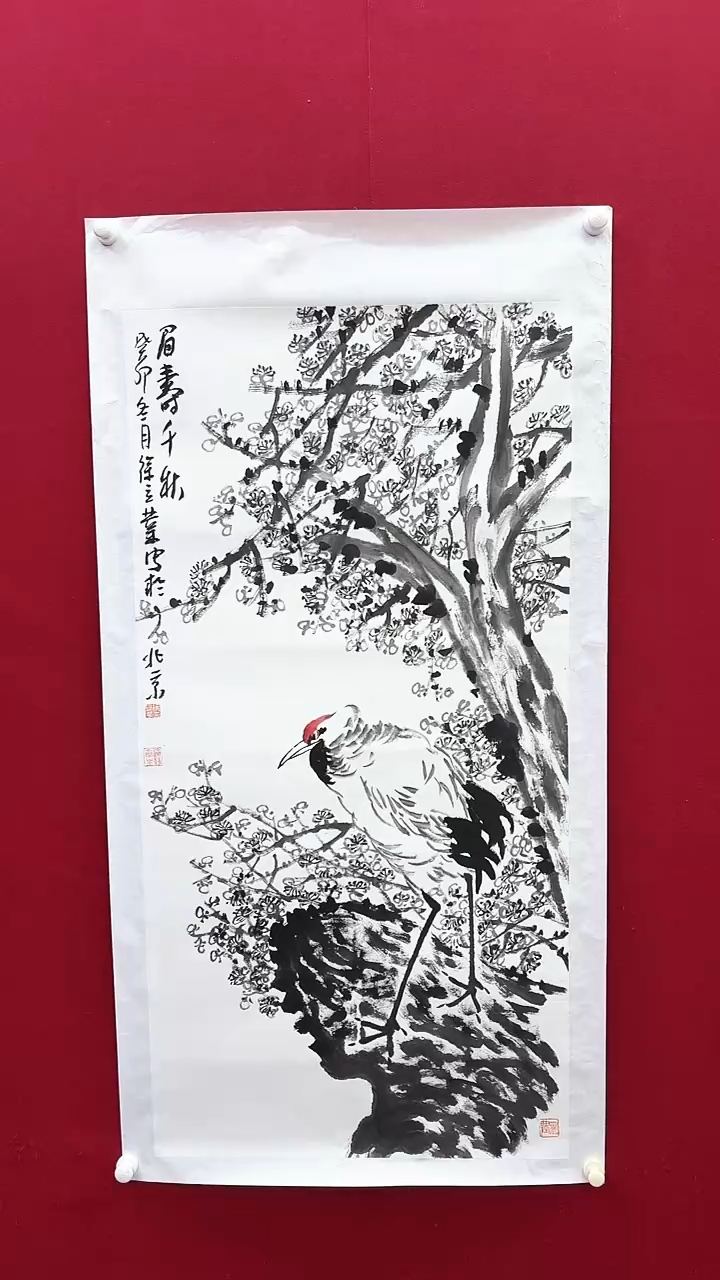 眉寿千秋
癸卯冬月徐立业写于北京